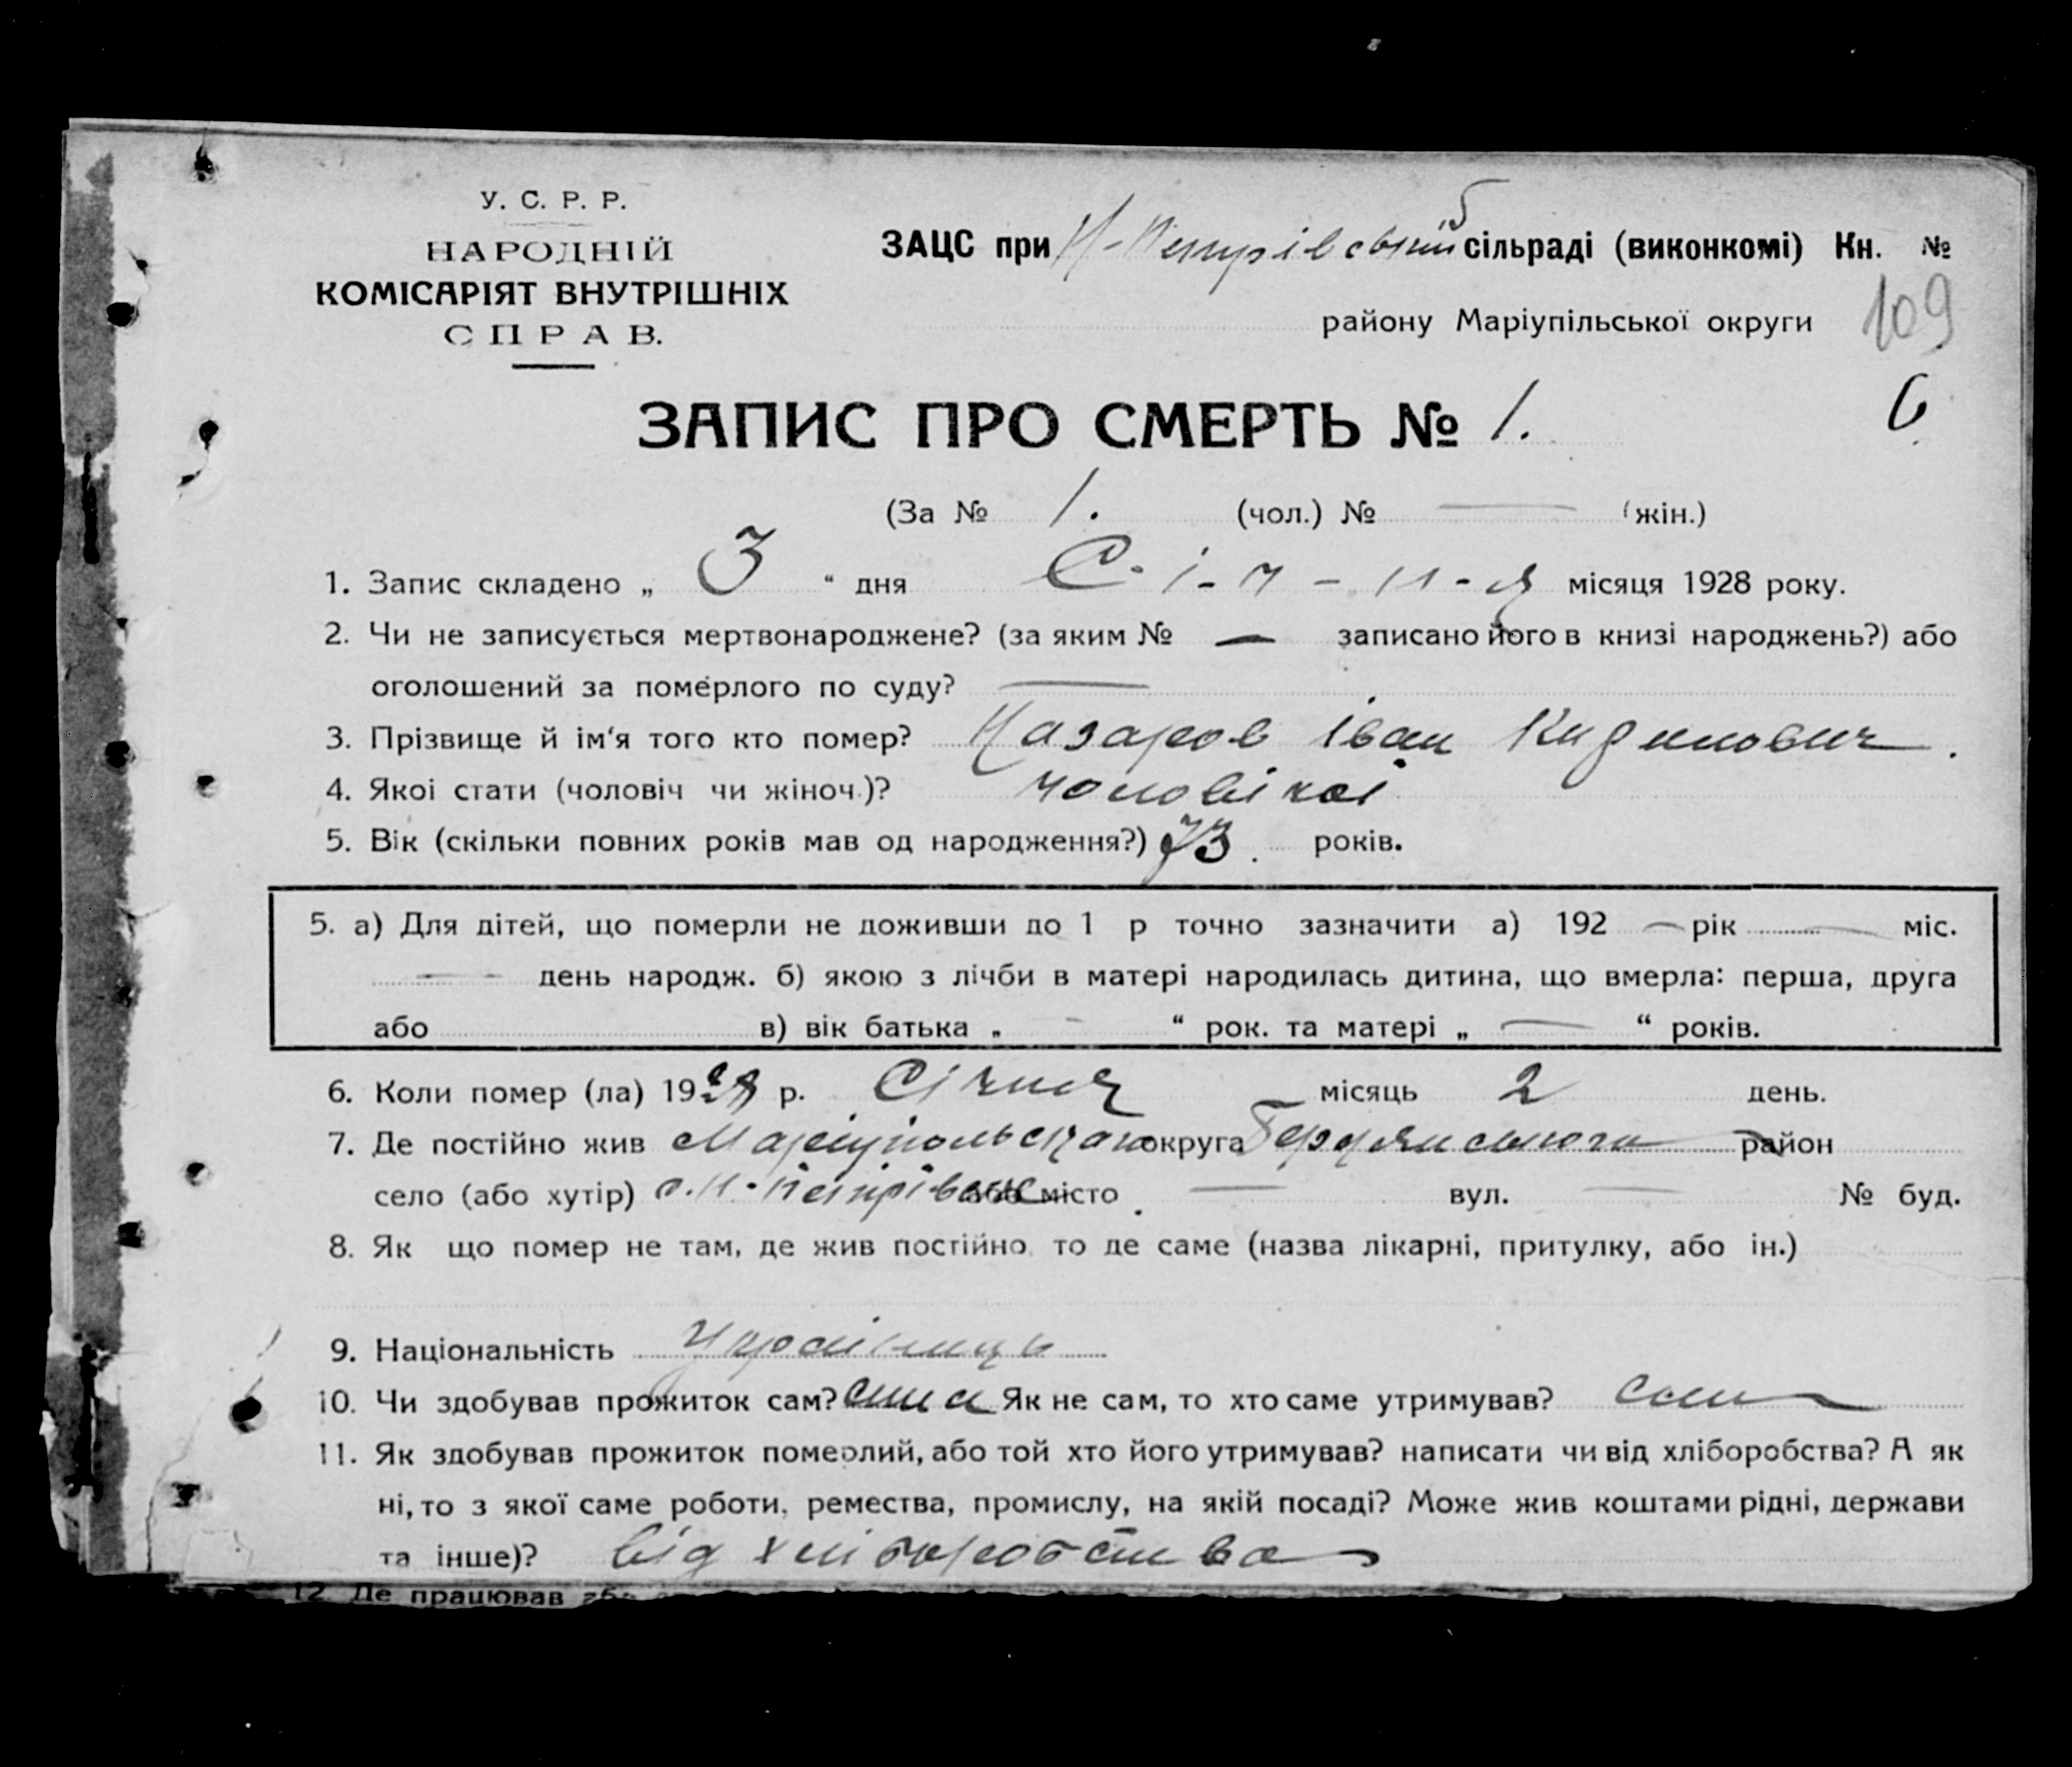 У. С. Р. Р.
НАРОДНІЙ
КОМІСАРІЯТ ВНУТРІШНІХ
СПРАВ.
ЗАЦС при Н-Петрівській сільраді (виконкомі) Кн. №
району Маріупільської округи
109
6
ЗАПИС ПРО СМЕРТЬ № 1.
(За № 1. (чол.) № — (жін.)
1. Запис складено „ 3 “ дня С-і-ч-н-я місяця 1928 року.
2. Чи не записується мертвонароджене? (за яким № — записано його в книзі народжень?) або
оголошений за померлого по суду? —
3. Прізвище й ім‘я того кто помер? Назаров Іван
4. Якоі стати (чоловіч чи жіноч.)? чоловікоі
5. Вік (скільки повних років мав од народження?) 73. років.
5. а) Для дітей, що померли не доживши до 1 р точно зазначити а) 192 — рік — міс.
— день народж. б) якою з лічби в матері народилась дитина, що вмерла: перша, друга
або в) вік батька „ - “ рок. та матері „ — “ років.
6. Коли помер (ла) 1928 р. Січня місяць 2 день.
7. Де постійно жив округа район
село (або хутір) або місто — вул. — № буд.
8. Як що помер не там, де жив постійно, то де саме (назва лікарні, притулку, або ін.)
9. Національність Українець
10. Чи здобував прожиток сам? сам Як не сам, то хто саме утримував? сам
11. Як здобував прожиток померлий, або той хто його утримував? написати чи від хліборобства? А як
ні, то з якої саме роботи, ремества, промислу, на якій посаді? Може жив коштами рідні, держави
та інше)? від хліборобства
12. Де працював